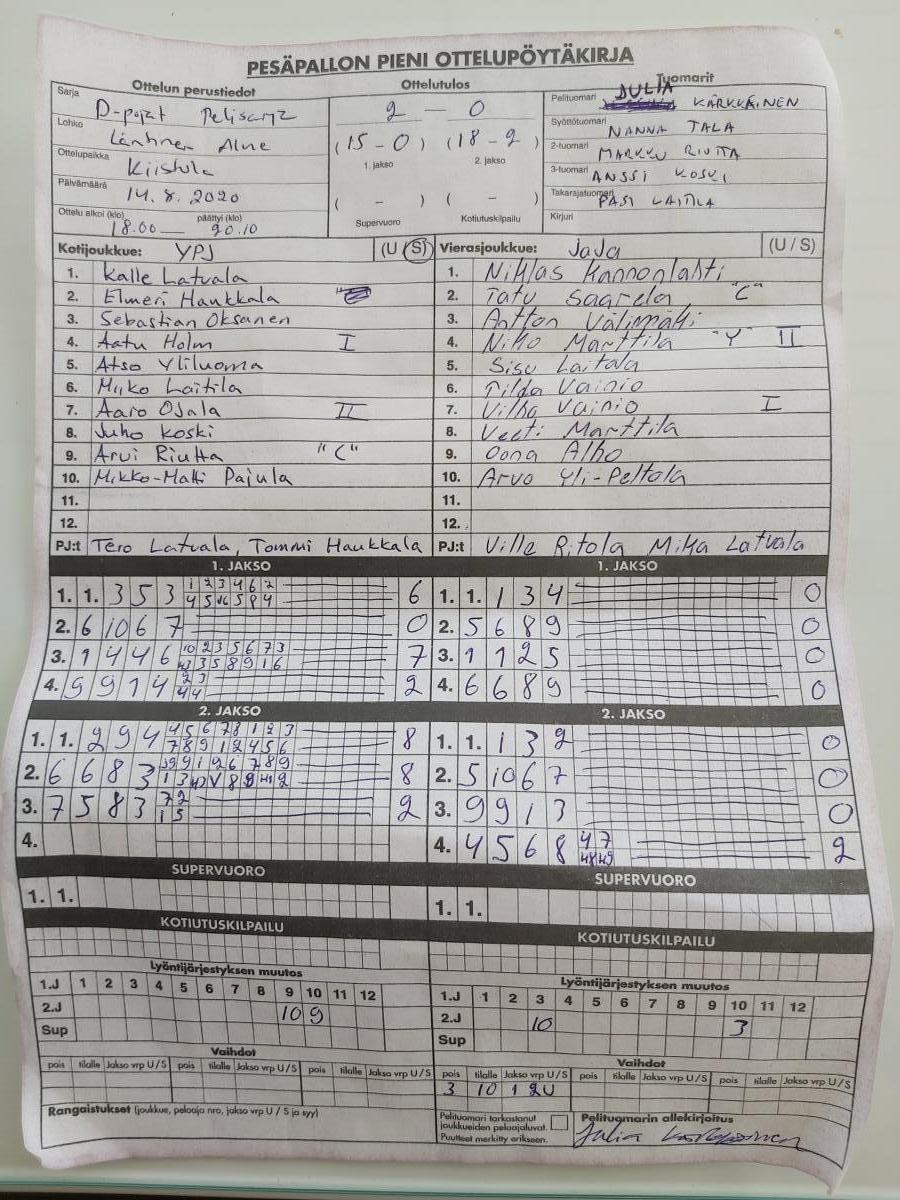 PESÄPALLON PIENI OTTELUPÖYTÄKIRJA
Ottelun perustiedot Ottelutulos Tuomarit
Sarja D-pojat
Lohko
Ottelupaikka
Päivämäärä 14.8.2020
Ottelu alkoi (klo) 18.00 päättyi (klo) 20.10
2 - 0
(15-0) (18-2)
1. jakso 2. jakso
( - ) ( - )
Supervuoro Kotiutuskilpailu
Pelituomari JULIA KÄRKKÄINEN
Syöttötuomari NANNA TALA
2-tuomari MARKKU RIUTTA
3-tuomari ANSSI KOSKI
Takarajatuomari PASI LAITILA
Kirjuri
Kotijoukkue: YPJ (U/S) Vierasjoukkue: JaJa (U/S)
1. Kalle Latvala 1. Niklas Kannonlahti
2. Elmeri Haukkala 2. Tatu Saarela "C"
3. Sebastian Oksanen 3. Antton Välimäki
4. Aatu Holm I 4. Niko Marttila "Y" II
5. Atso Yliluoma 5. Sisu Laitala
6. Miiko Laitila 6. Tilda Vainio
7. Aaro Ojala II 7. Vilho Vainio I
8. Juho Koski 8. Veeti Marttila
9. Arvi Riutta "C" 9. Oona Alho
10. Mikko-Matti Pajula 10. Arvo Yli-Peltola
11. 11.
12. 12.
PJ:t Tero Latvala, Tommi Haukkala PJ:t Ville Ritola Mika Latvala
1. JAKSO 1. JAKSO
1. 1. 3 5 3 6 1. 1. 1 3 4 0
2. 6 10 6 7 0 2. 5 6 8 9 0
3. 1 4 4 6 7 3. 1 1 2 5 0
4. 9 9 1 4 2 4. 6 6 8 9 0
2. JAKSO 2. JAKSO
1. 1. 2 9 4 8 1. 1. 1 3 2 0
2. 6 6 8 3 8 2. 5 10 6 7 0
3. 7 5 8 3 2 3. 9 9 1 3 0
4. 4. 4 5 6 8 2
SUPERVUORO SUPERVUORO
1. 1. 1. 1.
KOTIUTUSKILPAILU KOTIUTUSKILPAILU
Lyöntijärjestyksen muutos Lyöntijärjestyksen muutos
1.J 1 2 3 4 5 6 7 8 9 10 11 12 1.J 1 2 3 4 5 6 7 8 9 10 11 12
2.J 10 9 2.J 10 3
Sup Sup
Vaihdot Vaihdot
pois tilalle Jakso vrp U/S pois tilalle Jakso vrp U/S pois tilalle Jakso vrp U/S pois tilalle Jakso vrp U/S pois tilalle Jakso vrp U/S pois tilalle Jakso vrp U/S
3 10 1 2U
Rangaistukset (joukkue, pelaaja nro, jakso vrp U / S ja syy)
Pelituomari tarkastanut
joukkueiden pelaajaluvat.
Puutteet merkitty erikseen.
Pelituomarin allekirjoitus
Julia